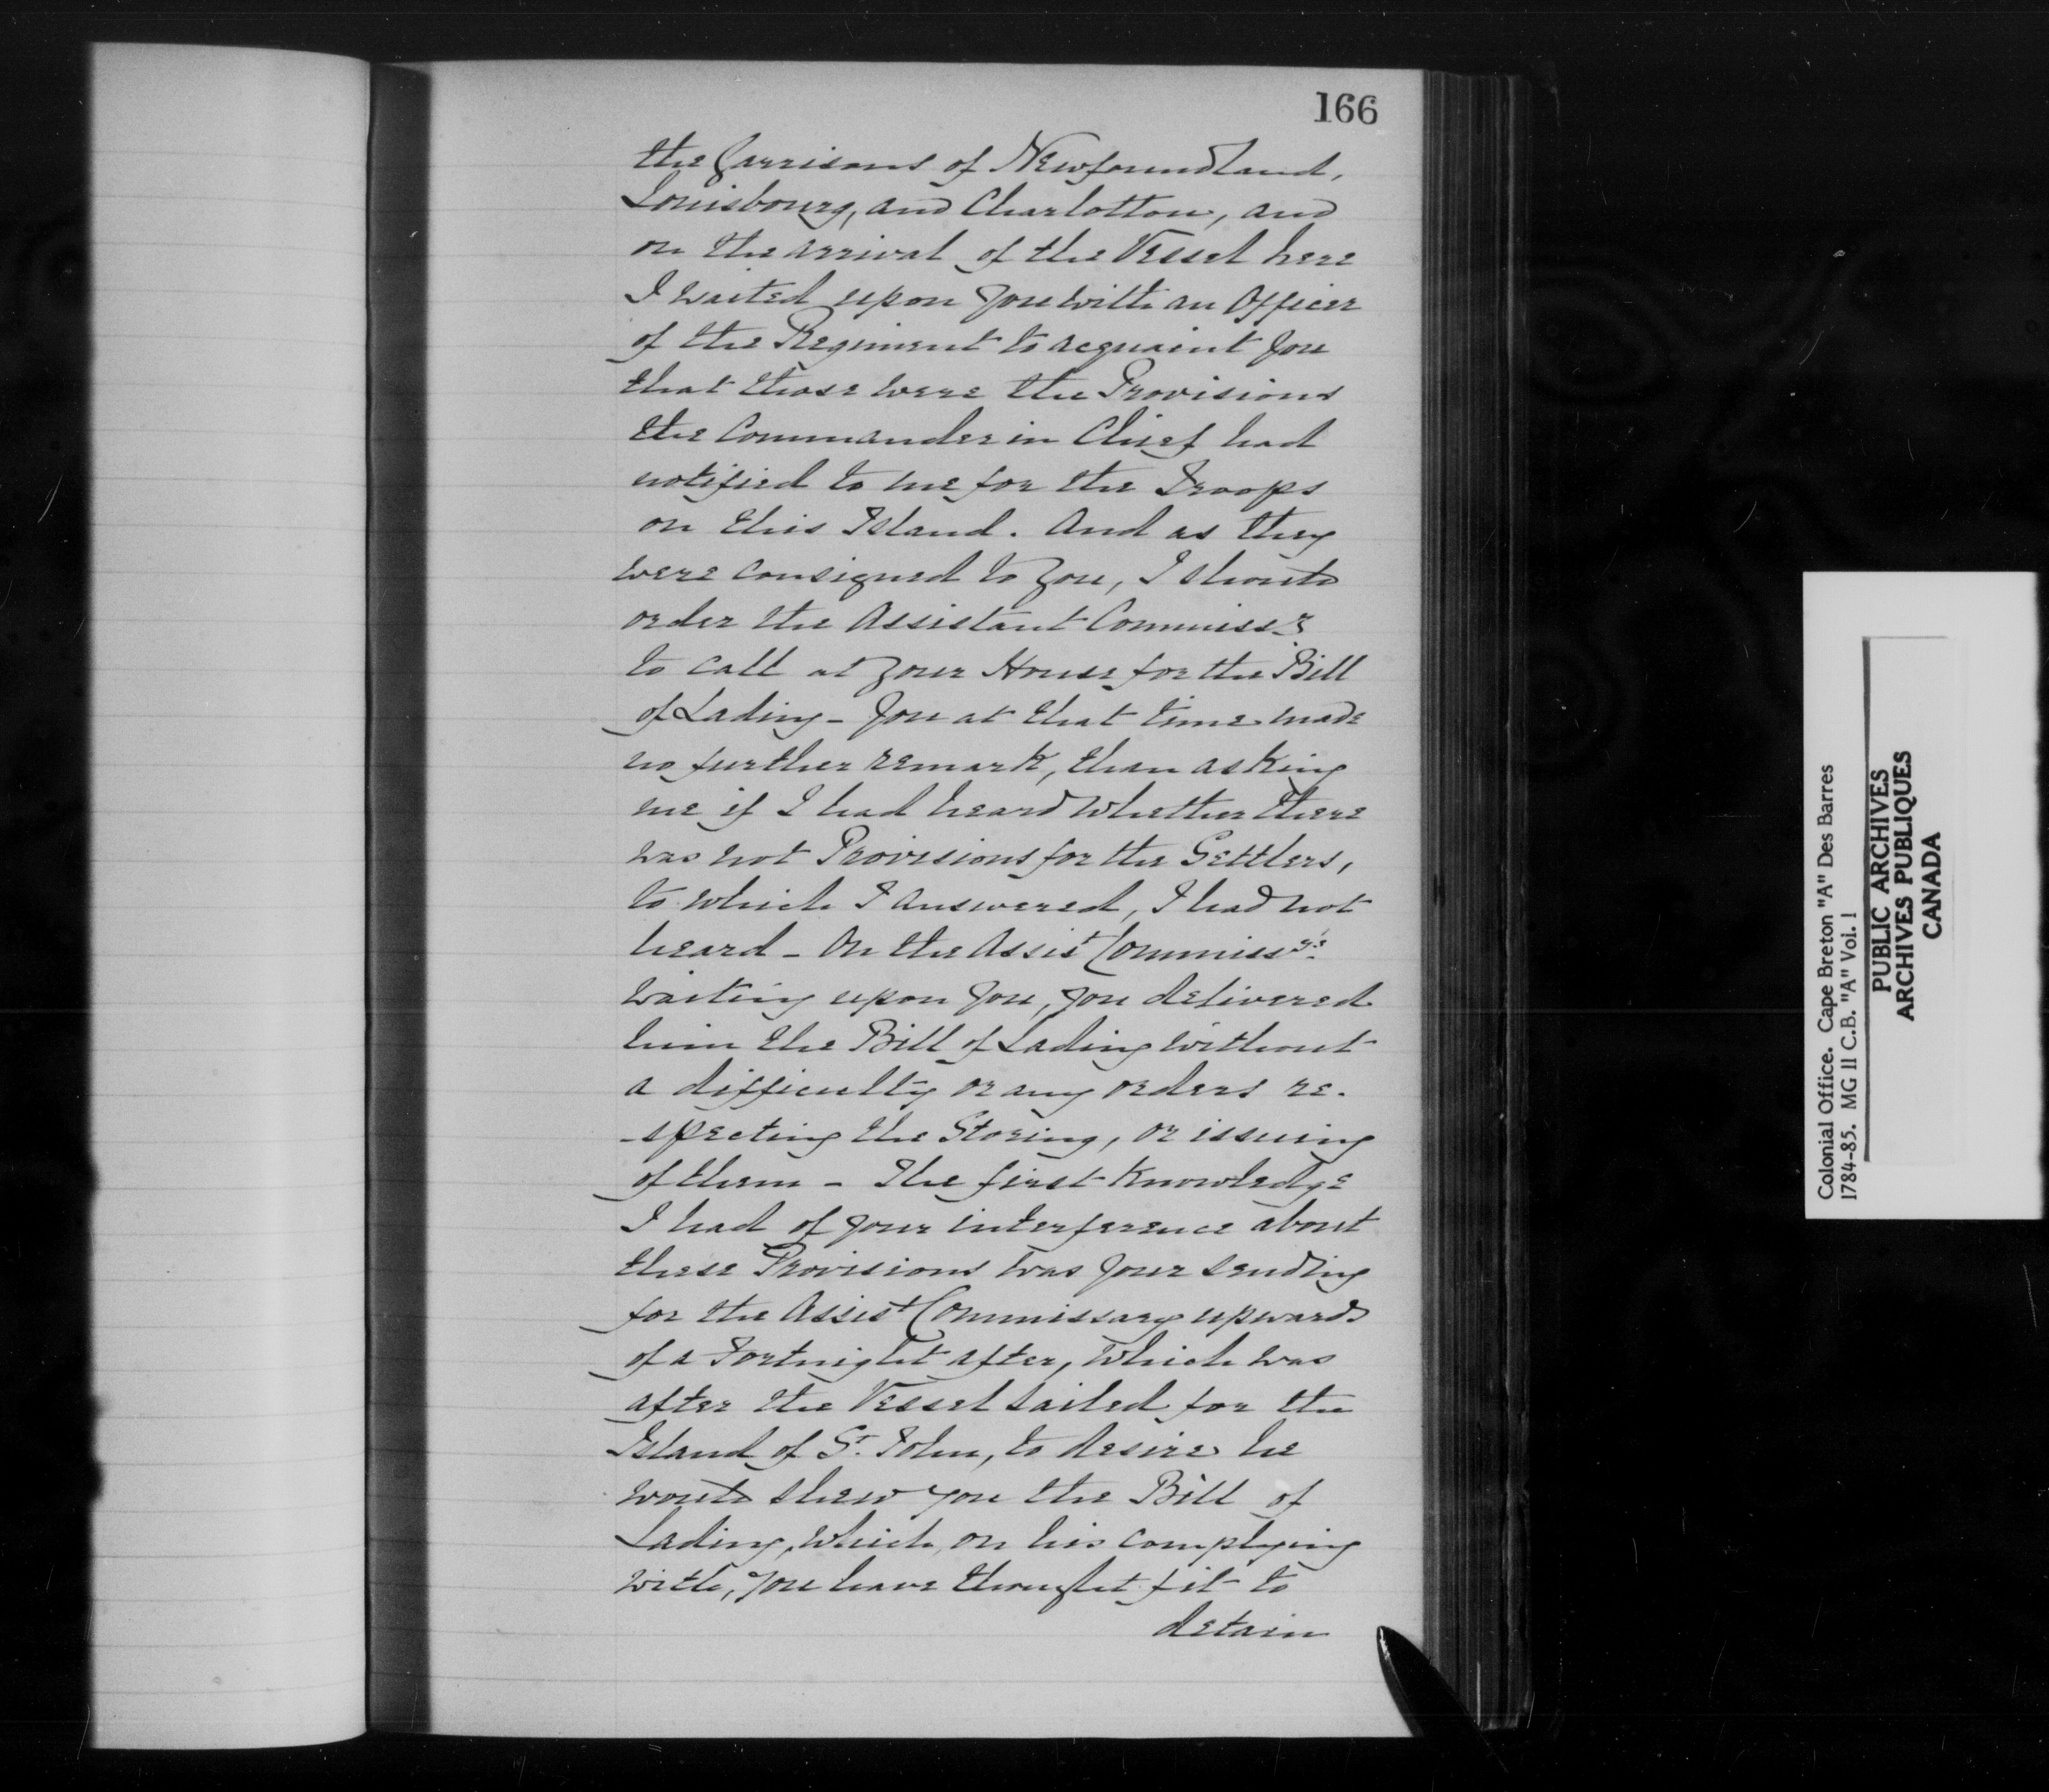 166
the Garrisons of Newfoundland,
Louisbourg, and Charlotton, and
on the arrival of the Vessel here
I waited upon you with an Officer
of the Regiment to acquaint you
that those were the Provisions
the Commander in Chief had
notified to me for the Troops
on this Island. And as they
were consigned to you, I should
order the Assistant Commissr
to call at your House for the Bill
of Lading - you at that time made
no further remark, than asking
me if I had heard whether there
was not Provisions for the Settlers,
to which I answered, I had not
heard - On the Assist Commissr's
waiting upon you, you delivered
him the Bill of Lading without
a difficulty or any orders re-
-specting the Storing, or issuing
of them - The first knowledge
I had of your interference about
these Provisions was your sending
for the Assist Commissary upwards
of a Fortnight after, which was
after the Vessel sailed for the
Island of St. John, to desire he
would shew you the Bill of
Lading, which, on his complying
with, you have thought fit to
detain
Colonial Office. Cape Breton "A" Des Barres
1784-85. MG 11 C.B. "A" Vol. 1
PUBLIC ARCHIVES
ARCHIVES PUBLIQUES
CANADA